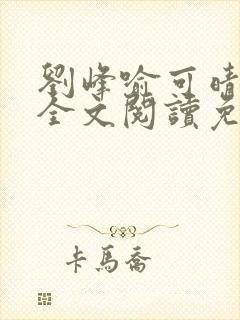 劉峰喻可晴
全文閱讀免
卡馬喬